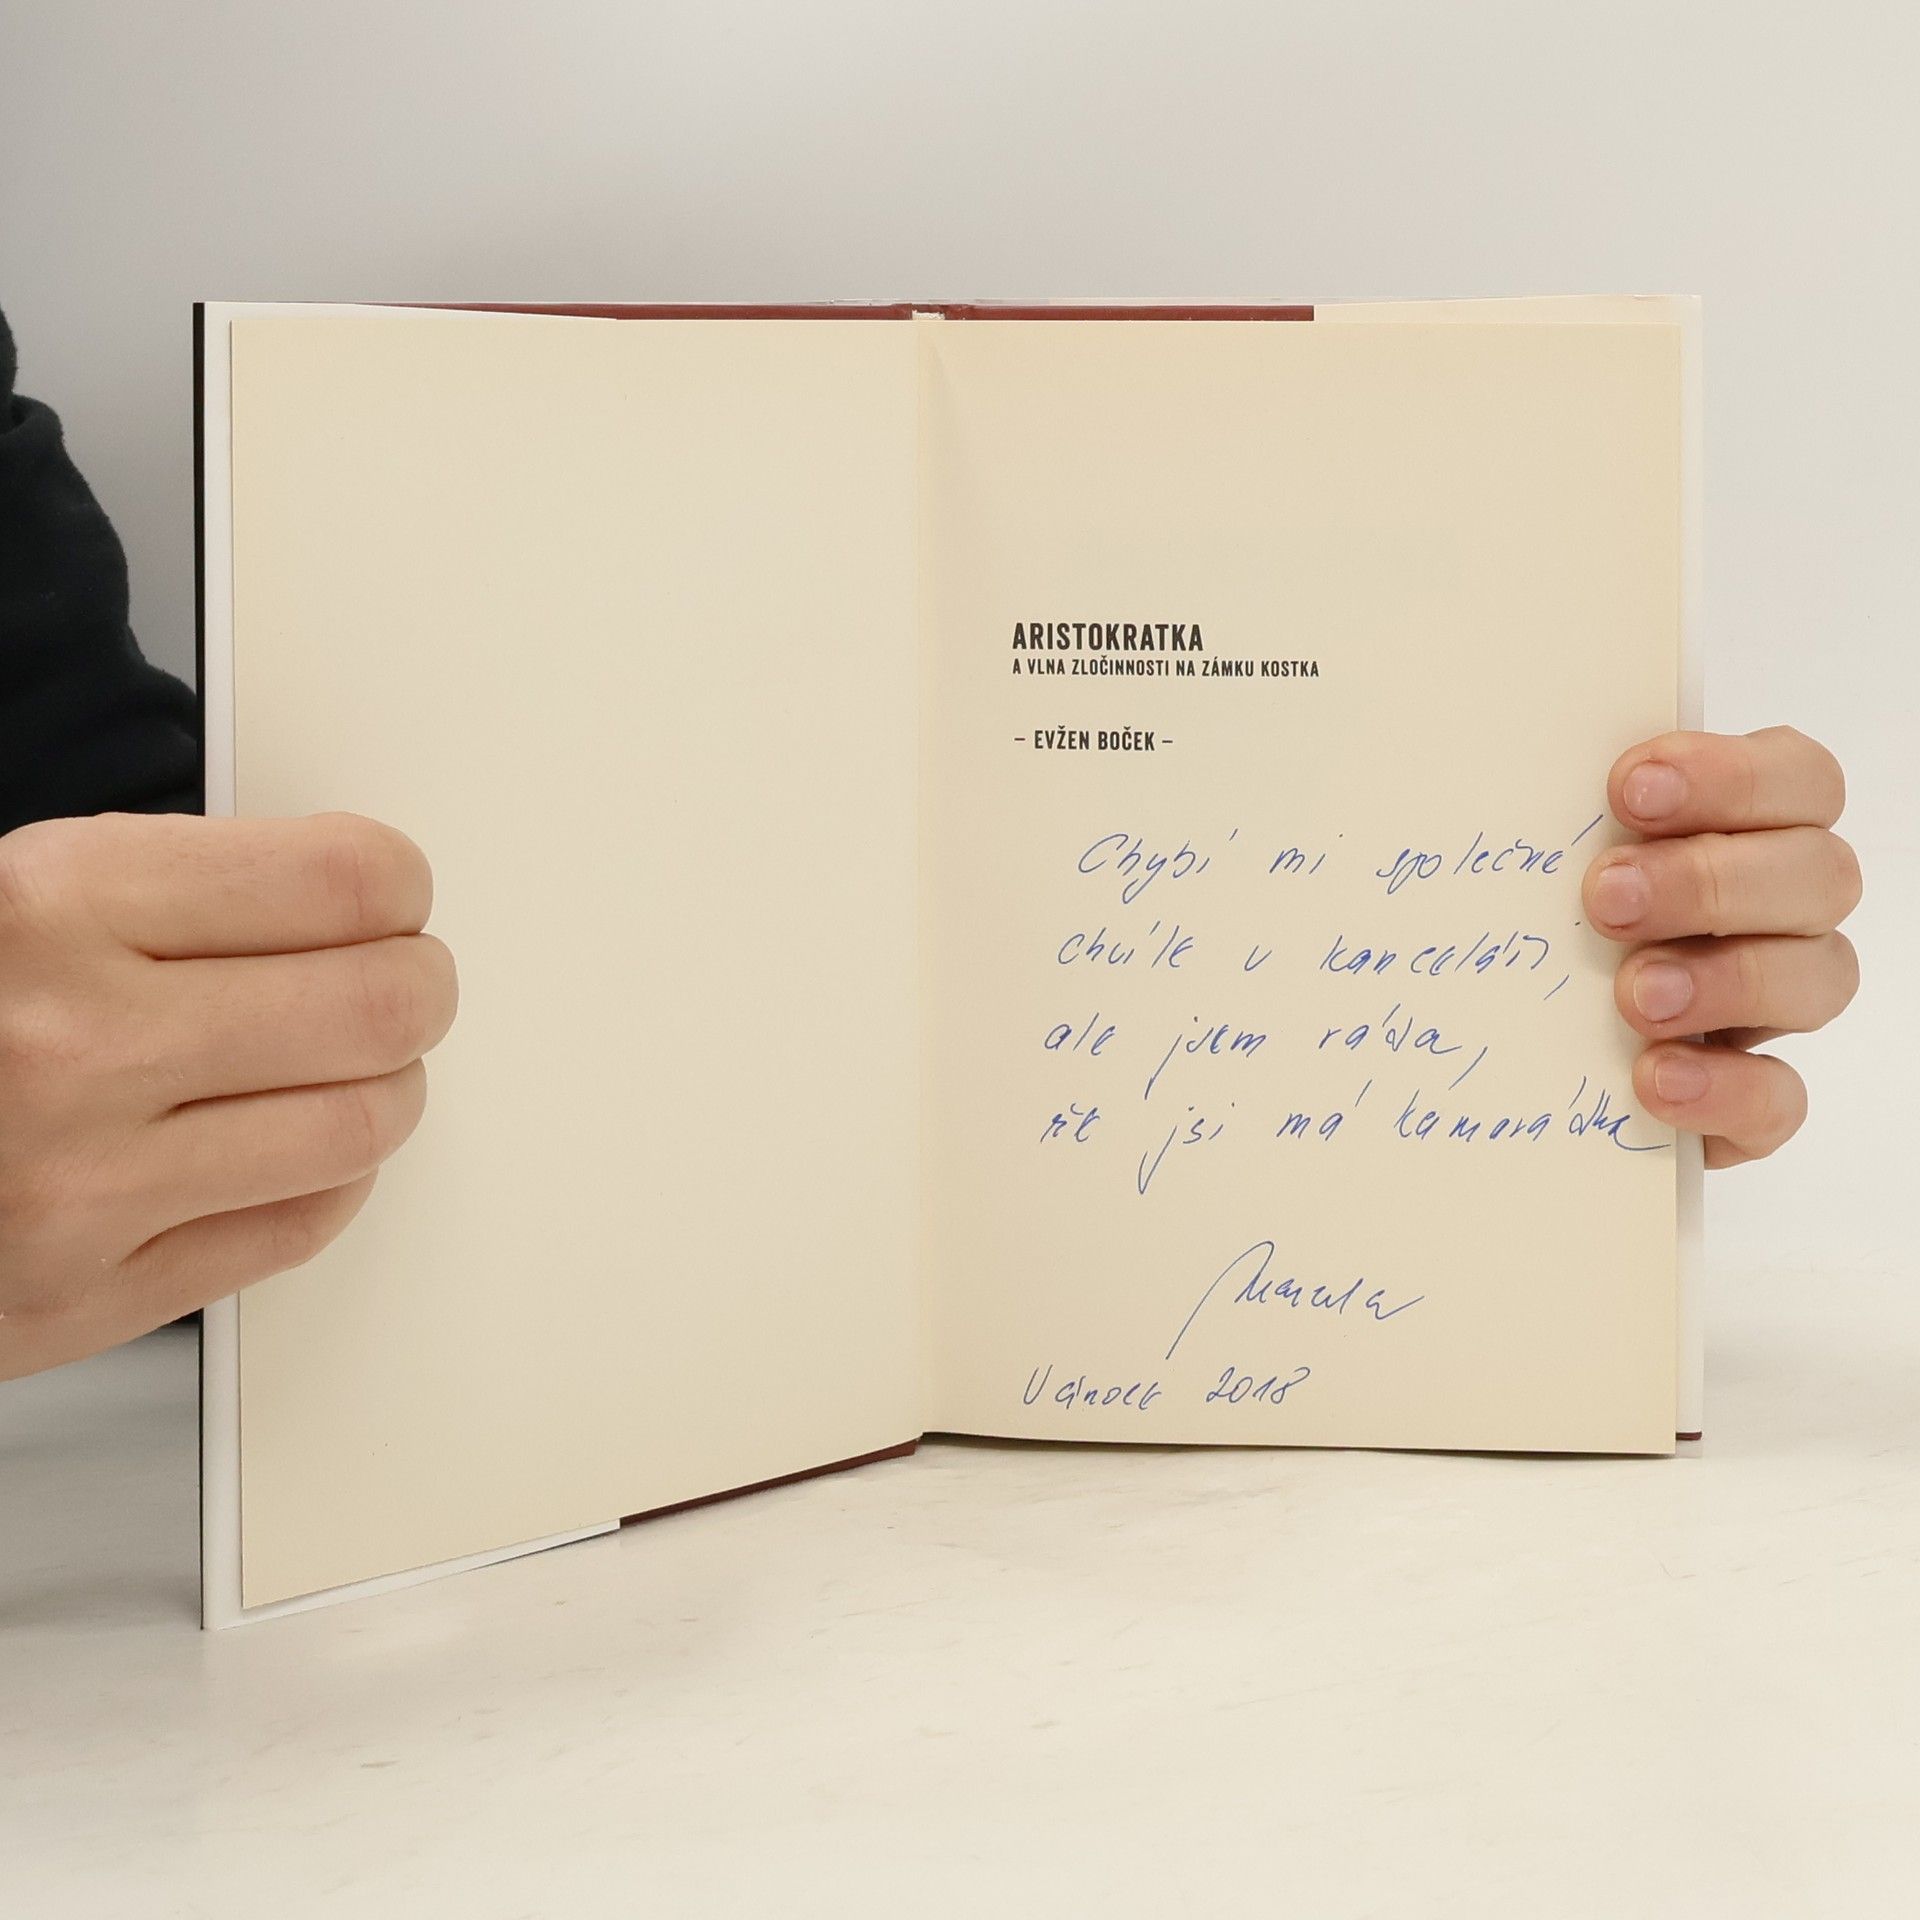 ARISTOKRATKA
A VLNA ZLOČINNOSTI NA ZÁMKU KOSTKA
– EVŽEN BOČEK –
Chybí mi společné
chvíle v kanceláři,
ale jsem ráda,
že jsi má kamarádka
Marcela
Vánoce 2018